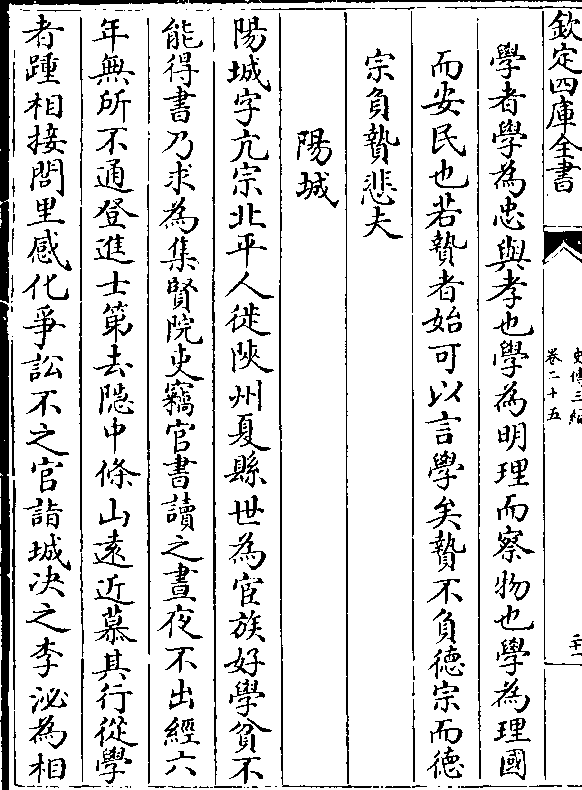 欽定四庫全書
史傳三編
卷二十五
二十一
學者學為忠與孝也學為明理而察物也學為理國
而安民也若贄者始可以言學矣贄不負德宗而德
宗負贄悲夫
陽城
陽城字亢宗北平人徙陝州夏縣世為宦族好學貧不
能得書乃求為集賢院吏竊官書讀之晝夜不出經六
年無所不通登進士第去隠中條山遠近慕其行從學
者踵相接閭里感化爭訟不之官詣城决之李泌為相